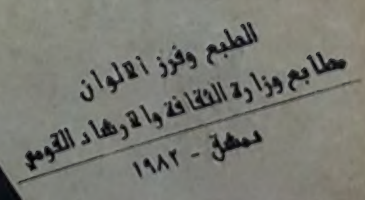 الطبع وفرز الالوان
مطابع وزارة الثقافة والارشاد القومي
دمشق - ١٩٨٢